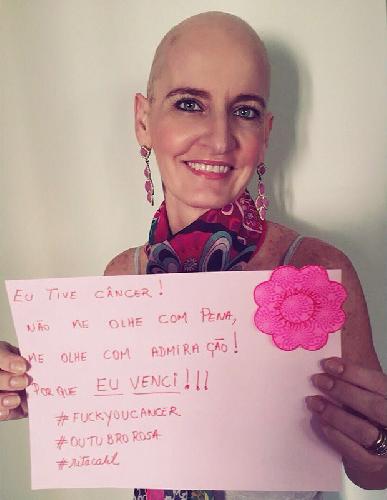 EU TIVE CÂNCER!
NÃO ME OLHE COM PENA,
ME OLHE COM ADMIRAÇÃO!
PORQUE EU VENCI!!!
#FUCKYOUCANCER
#OUTUBROROSA
#ritacahl